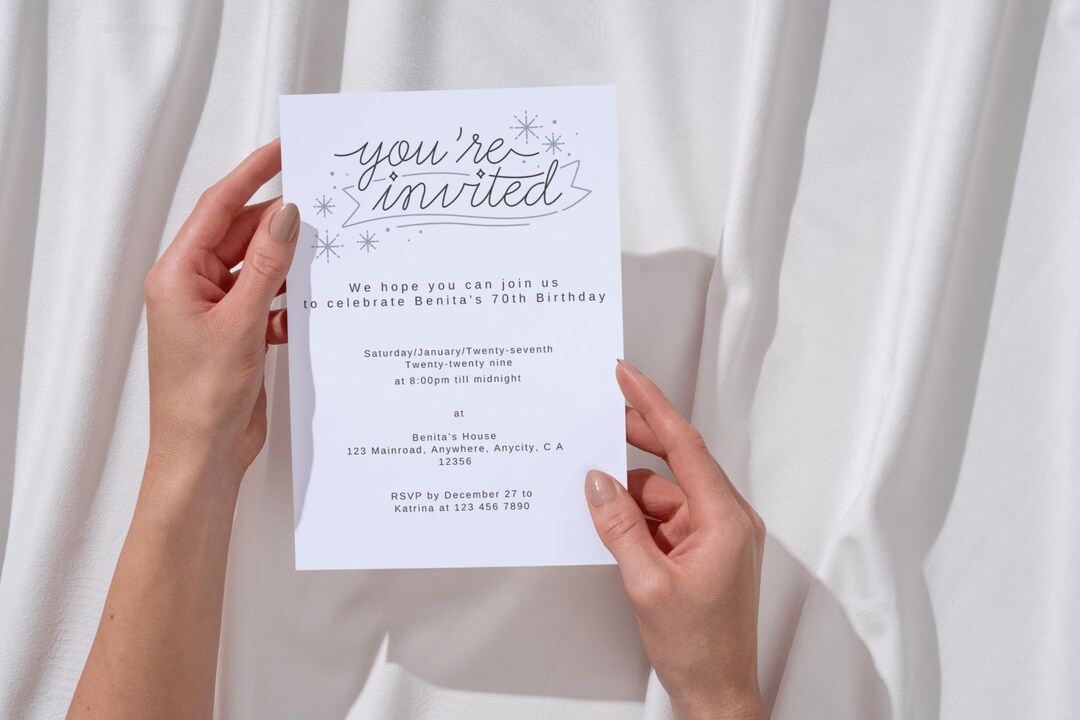 you're
invited
We hope you can join us
to celebrate Benita's 70th Birthday
Saturday/January/Twenty-seventh
Twenty-twenty nine
at 8:00pm till midnight
at
Benita's House
123 Mainroad, Anywhere, Anycity, C A
12356
RSVP by December 27 to
Katrina at 123 456 7890